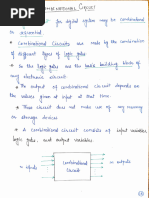 COMBINATIONAL CIRCUIT
for digital system may be combinational
or sequential
* Combinational Circuits are made by the combination
of different types of logic gates
* logic gates are the basic building blocks of
any electronic circuit
* The output of combinational circuit depends on
the values given of input at that time
* These circuit does not make use of any memory
or storage devices
* A combinational circuit consists of input variables
logic gates, and output variables.
n inputs
Combinational
Circuit
m outputs